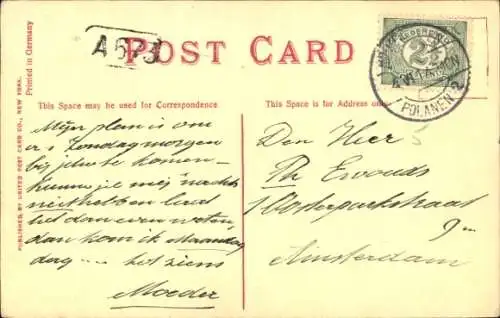 A 573
POST CARD
NEDERLAND
2½
POLANEN 2
Printed in Germany
PUBLISHED BY UNITED POST CARD CO., NEW YORK.
This Space may be used for Correspondence.
This Space is for Address only.
Mijn plan is om
er's Zondagmorgen
bij jelui te komen -
kunnen jelui mij 'snachts
niet hebben laat
het dan even weten,
dan kom ik Maandag
dag .... tot ziens
Moeder
Den Heer
Th Ewouds
Oosterparkstraat
Amsterdam